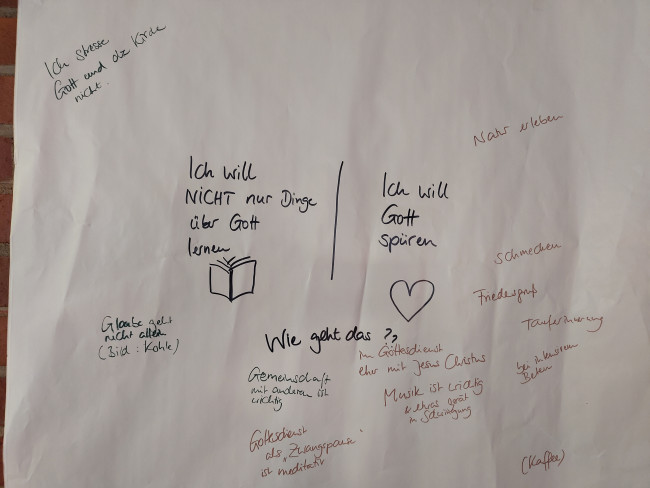 Ich stresse
Gott und die Kirche
nicht.
Natur erleben
Ich will
NICHT nur Dinge
über Gott
lernen
Ich will
Gott
spüren
schmecken
Friedensgruß
Tauferinnerung
Glaube geht
nicht allein
(Bild: Kohle)
Wie geht das ??
im Gottesdienst
eher mit Jesus Christus
bei intensivem
Beten
Gemeinschaft
mit anderen ist
wichtig
Musik ist wichtig
& etwas gerät
in Schwingung
Gottesdienst
als „Zwangspause“
ist meditativ
(Kaffee)